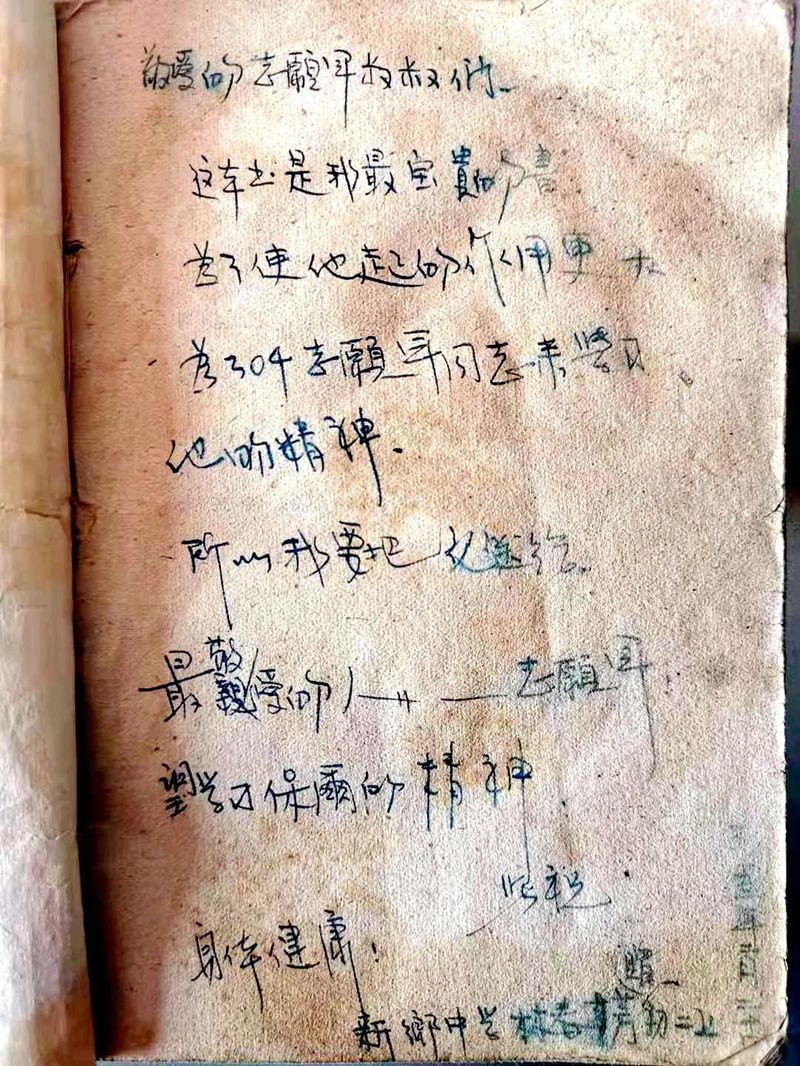 敬爱的志願军叔叔们
这本书是我最宝貴的書
為了使他起的作用更大
為了叫志願军同志来学习
他的精神.
所以我要把 送给
最敬親爱的人——志願军
望学习保爾的精神.
此祝:
身体健康!
贈
新鄉中学 初二